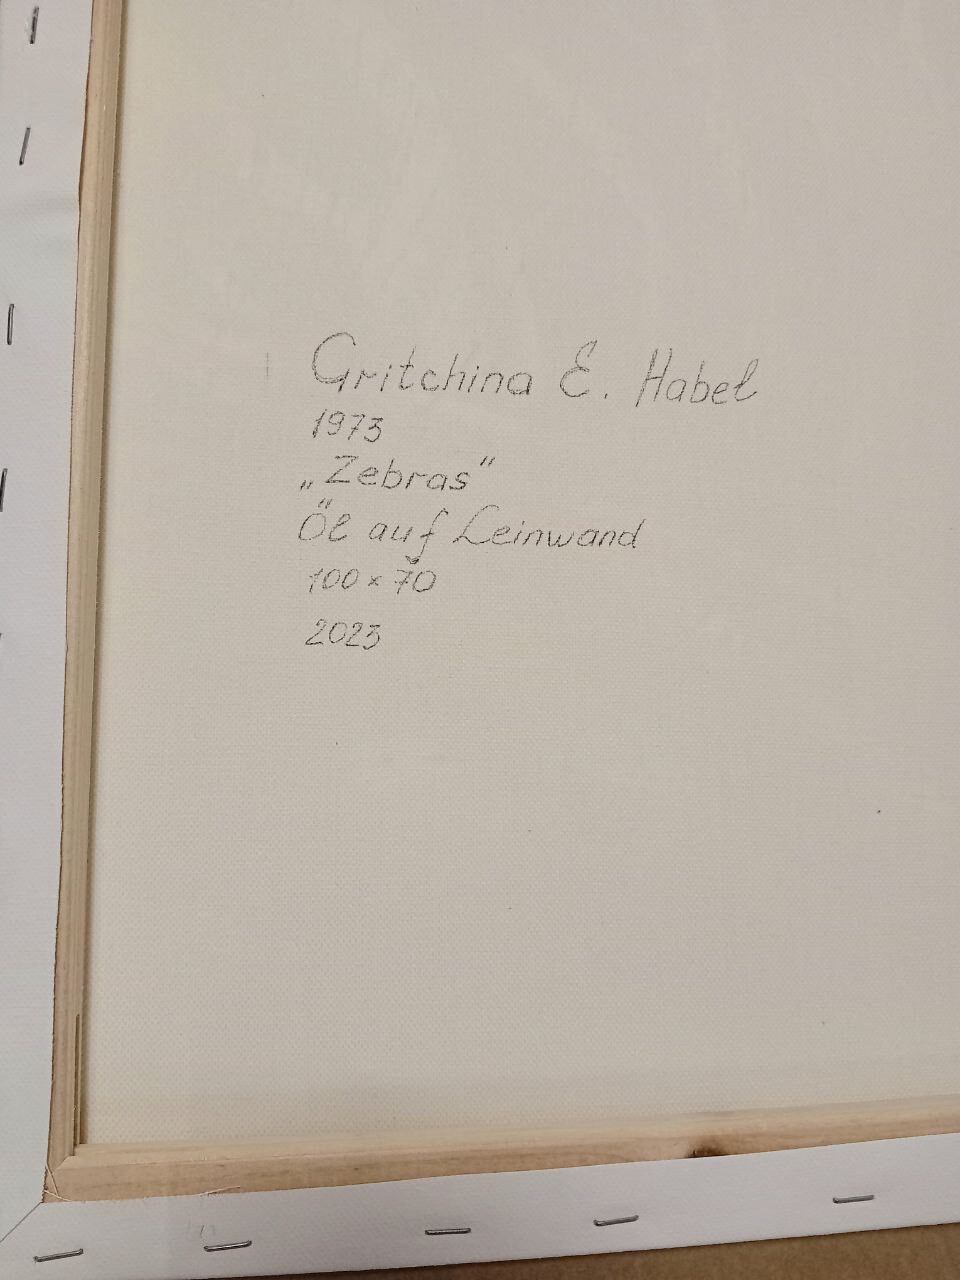 Gritchina E. Habel
1973
„Zebras“
Öl auf Leinwand
100 × 70
2023